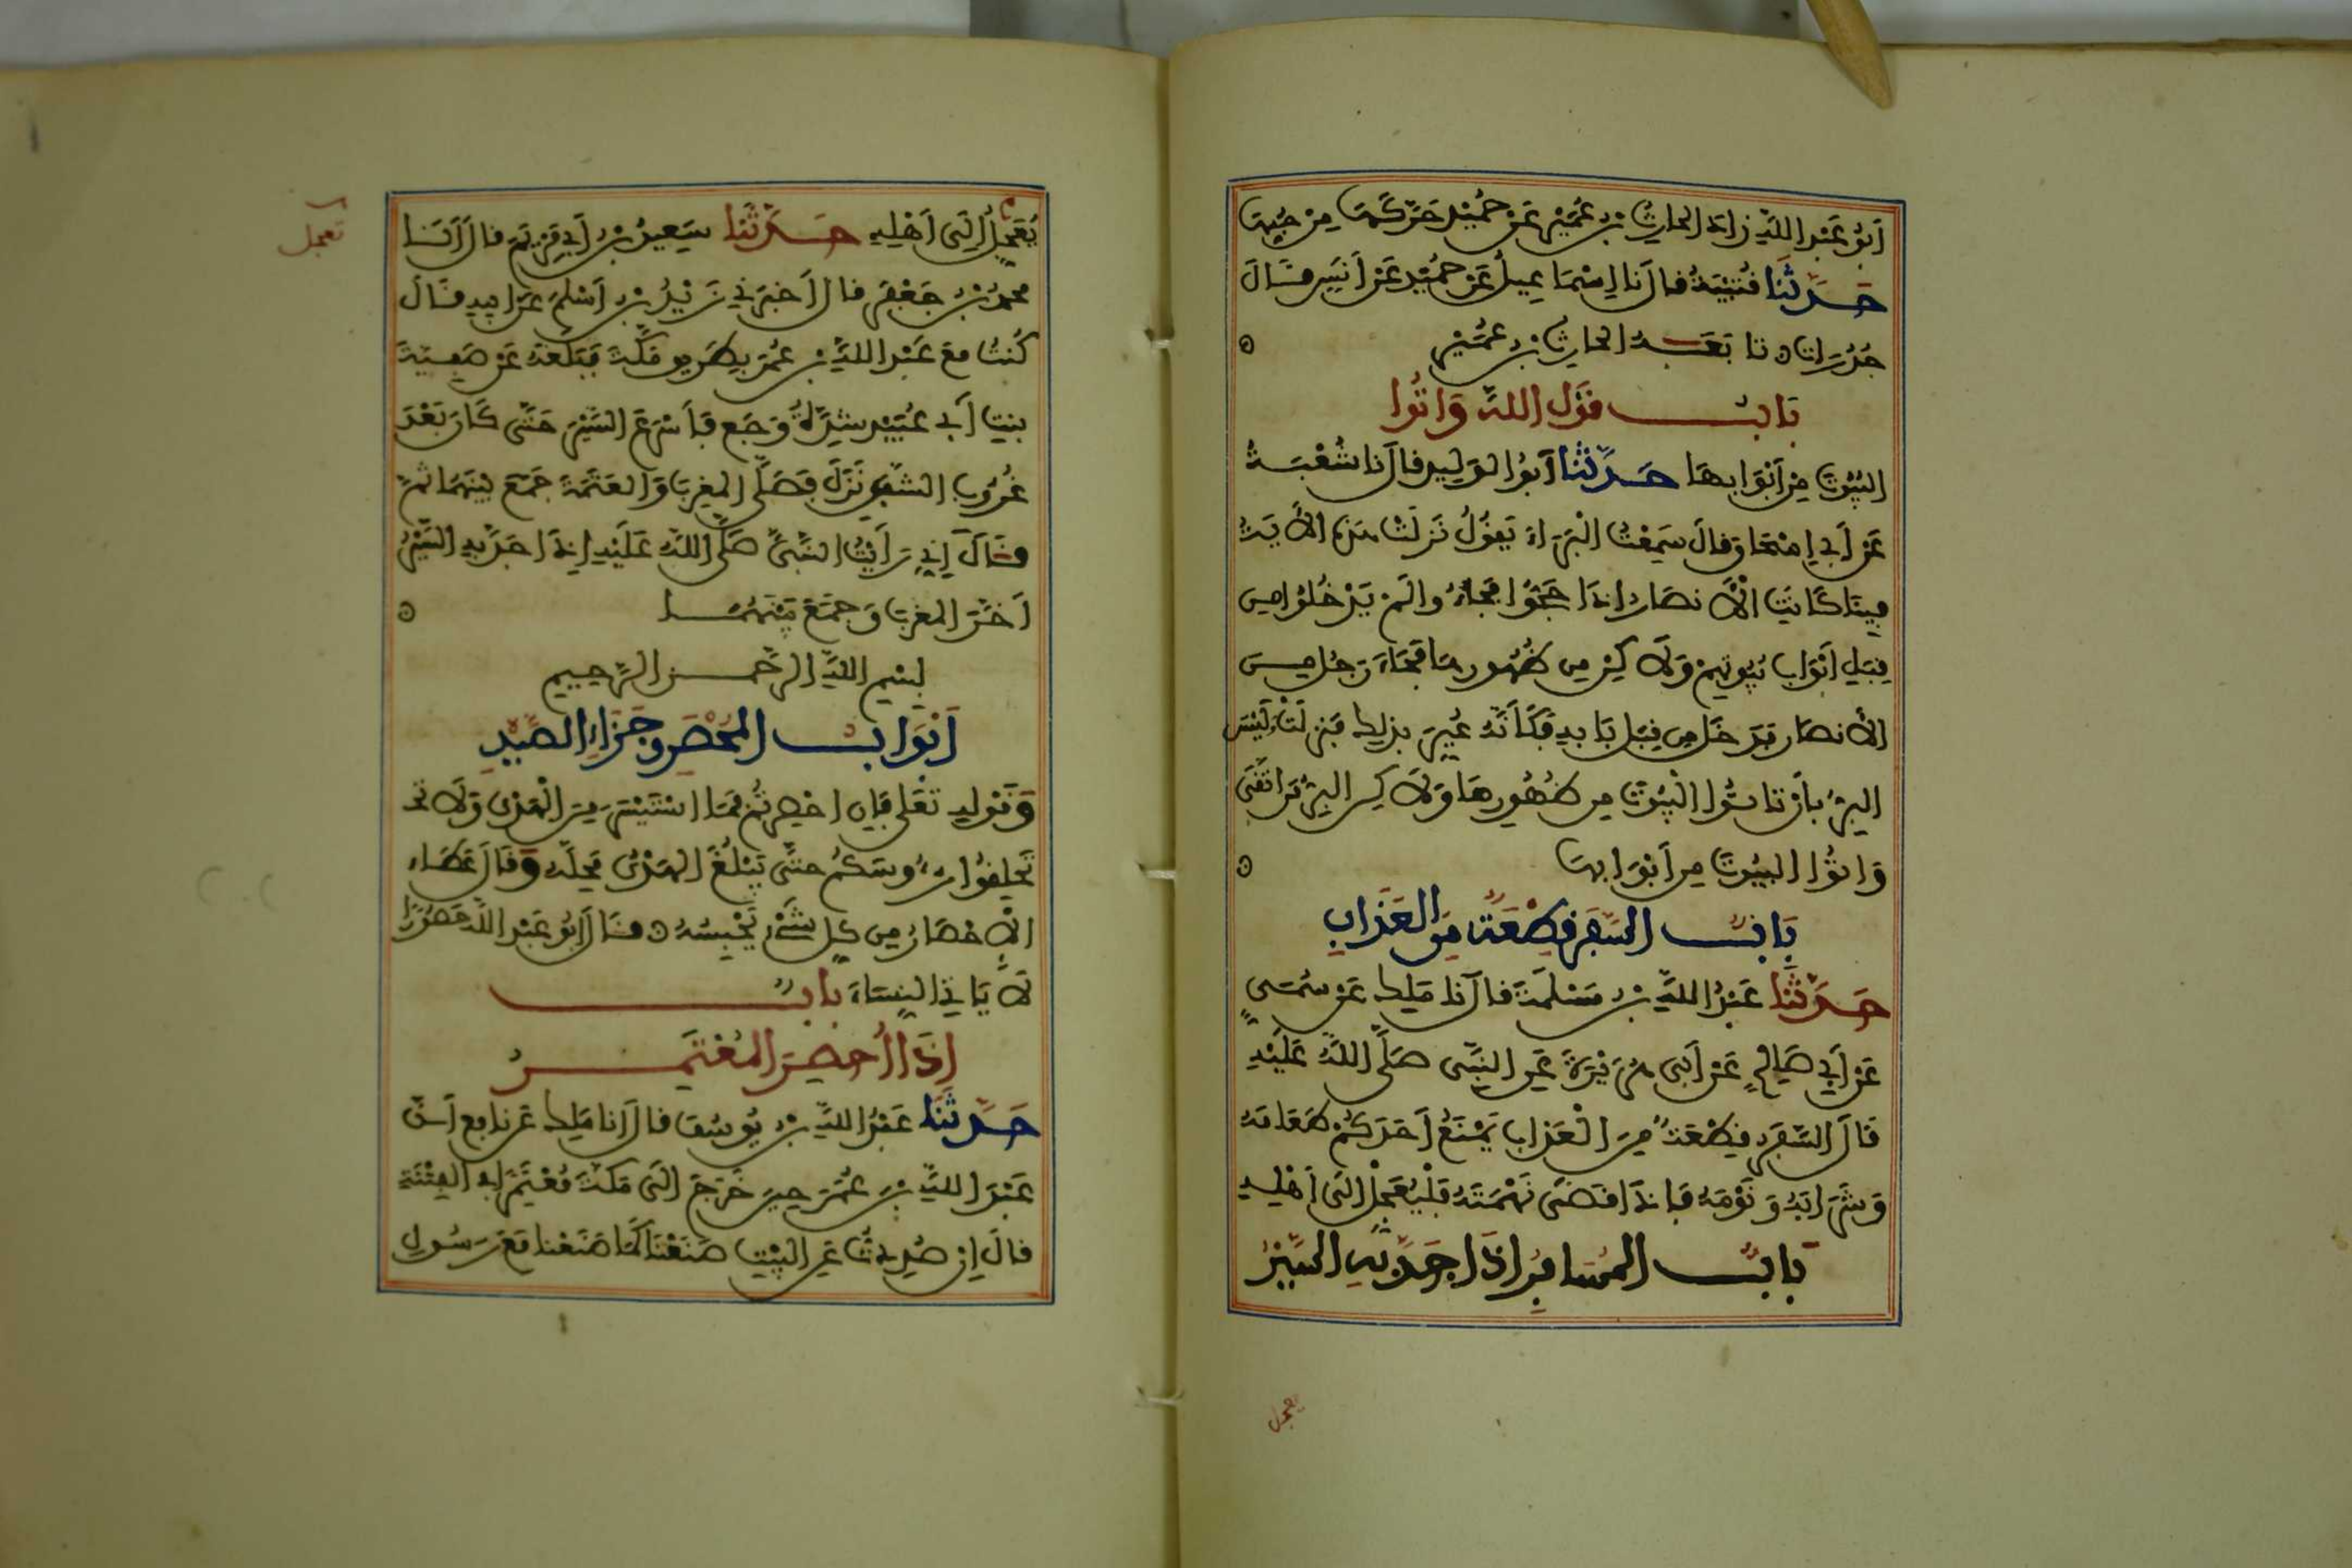 أَبُو عَبْدِ اللَّهِ زَادَ الحَارِثُ بْنُ عُمَيْرٍ عَنْ حُمَيْدٍ حَرَّكَهَا مِنْ حُبِّهَا
حَدَّثَنَا قُتَيْبَةُ قَالَ نَا إِسْمَاعِيلُ عَنْ حُمَيْدٍ عَنْ أَنَسٍ قَالَ
جُدُرَاتِ تَابَعَهُ الحَارِثُ بْنُ عُمَيْرٍ
بَابُ قَوْلِ اللَّهِ وَاتُوا
البُيُوتَ مِنْ أَبْوَابِهَا حَدَّثَنَا أَبُو الوَلِيدِ قَالَ نَا شُعْبَةُ
عَنْ أَبِي إِسْحَاقَ قَالَ سَمِعْتُ الْبَرَاءَ يَقُولُ نَزَلَتْ هَذِهِ الأَيَةُ
فِينَا كَانَتِ الأَنْصَارُ إِذَا حَجُّوا فَجَاءُوا لَمْ يَدْخُلُوا مِن
قِبَلِ أَبْوَابِ بُيُوتِهِمْ وَلَاكِنْ مِن ظُهُورِهَا فَجَاءَ رَجُلٌ مِنَ
الأَنْصَارِ فَدَخَلَ مِن قِبَلِ بَابِهِ فَكَأَنَّهُ عُيِّرَ بِذَلِكَ فَنَزَلَتْ وَلَيْسَ
البِرُّ بِأَنْ تَاتُوا الْبُيُوتَ مِن ظُهُورِهَا وَلَاكِنِ البِرُّ مَنِ اتَّقَى
وَاتُوا البُيُوتَ مِنْ أَبْوَابِهَا
بَابٌ السَّفَرُ قِطْعَةٌ مِنَ العَذَابِ
حَدَّثَنَا عَبْدُ اللَّهِ بْنُ مَسْلَمَةَ قَالَ نَا مَلِكٌ عَنْ سُمَيٍّ
عَنْ أَبِي صَالِحٍ عَنْ أَبِي هُرَيْرَةَ عَنِ النَّبِيِّ صَلَّى اللَّهُ عَلَيْهِ
قَالَ السَّفَرُ قِطْعَةٌ مِنَ الْعَذَابِ يَمْنَعُ أَحَدَكُمْ طَعَامَهُ
وَشَرَابَهُ وَنَوْمَهُ فَإِذَا قَضَى نَهْمَتَهُ فَلْيُعَجِّلْ إِلَى أَهْلِهِ
بَابُ المُسَافِرِ إِذَا جَدَّ بِهِ السَّيْرُ
يعجل
يُعَجِّلُ إِلَى أَهْلِهِ حَدَّثَنَا سَعِيدُ بْنُ أَبِي مَرْيَمَ قَالَ أَنَا
محمدُ بْنُ جَعْفَرٍ قَالَ أَخْبَرَنِي زَيْدُ بْنُ أَسْلَمَ عَنْ أَبِيهِ قَالَ
كُنْتُ مَعَ عَبْدِ اللَّهِ بْنِ عُمَرَ بِطَرِيقِ مَكَّةَ فَبَلَغَهُ عَنْ صَفِيَّةَ
بِنْتِ أَبِي عُبَيْدٍ شِدَّةُ وَجَعٍ فَأَسْرَعَ السَّيْرَ حَتَّى كَانَ بَعْدَ
غُرُوبِ الشَّفَقِ نَزَلَ فَصَلَّى المَغْرِبَ وَالعَتَمَةَ جَمَعَ بَيْنَهُمَا ثُمَّ
قَالَ إِنِّي رَأَيْتُ النَّبِيَّ صَلَّى اللَّهُ عَلَيْهِ إِذَا جَدَّ بِهِ السَّيْرُ
أَخَّرَ المَغْرِبَ وَجَمَعَ بَيْنَهُمَا
بِسْمِ اللَّهِ الرَّحْمَنِ الرَّحِيمِ
أَبْوَابُ المُحْصَرِ وَجَزَاءِ الصَّيْدِ
وَقَوْلِهِ تَعَلَى فَإِنْ احْصِرْتُمْ فَمَا اسْتَيْسَرَ مِنَ الْهَدْيِ وَلَا تَحْـ
تَحْلِقُوا رُءُوسَكُمْ حَتَّى يَبْلُغَ الهَدْيُ مَحِلَّهُ وَقَالَ عَطَاءٌ
الإِحْصَارُ مِن كُلِّ شَيْءٍ يَحْبِسُهُ قَالَ أَبُو عَبْدِ اللَّهِ حَصُورًا
لَا يَاتِي النِّسَاءَ بَابُ
إِذَا أُحْصِرَ المُعْتَمِرُ
حَدَّثَنَا عَبْدُ اللَّهِ بْنُ يُوسُفَ قَالَ أَنَا مَلِكٌ عَنْ نَافِعٍ أَنَّ
عَبْدَ اللَّهِ بْنَ عُمَرَ حِينَ خَرَجَ إِلَى مَكَّةَ مُعْتَمِرًا فِي الفِتْنَةِ
قَالَ إِنْ صُدِدْتُ عَنِ البَيْتِ صَنَعْنَا كَمَا صَنَعْنَا مَعَ رَسُولِ
تعجل